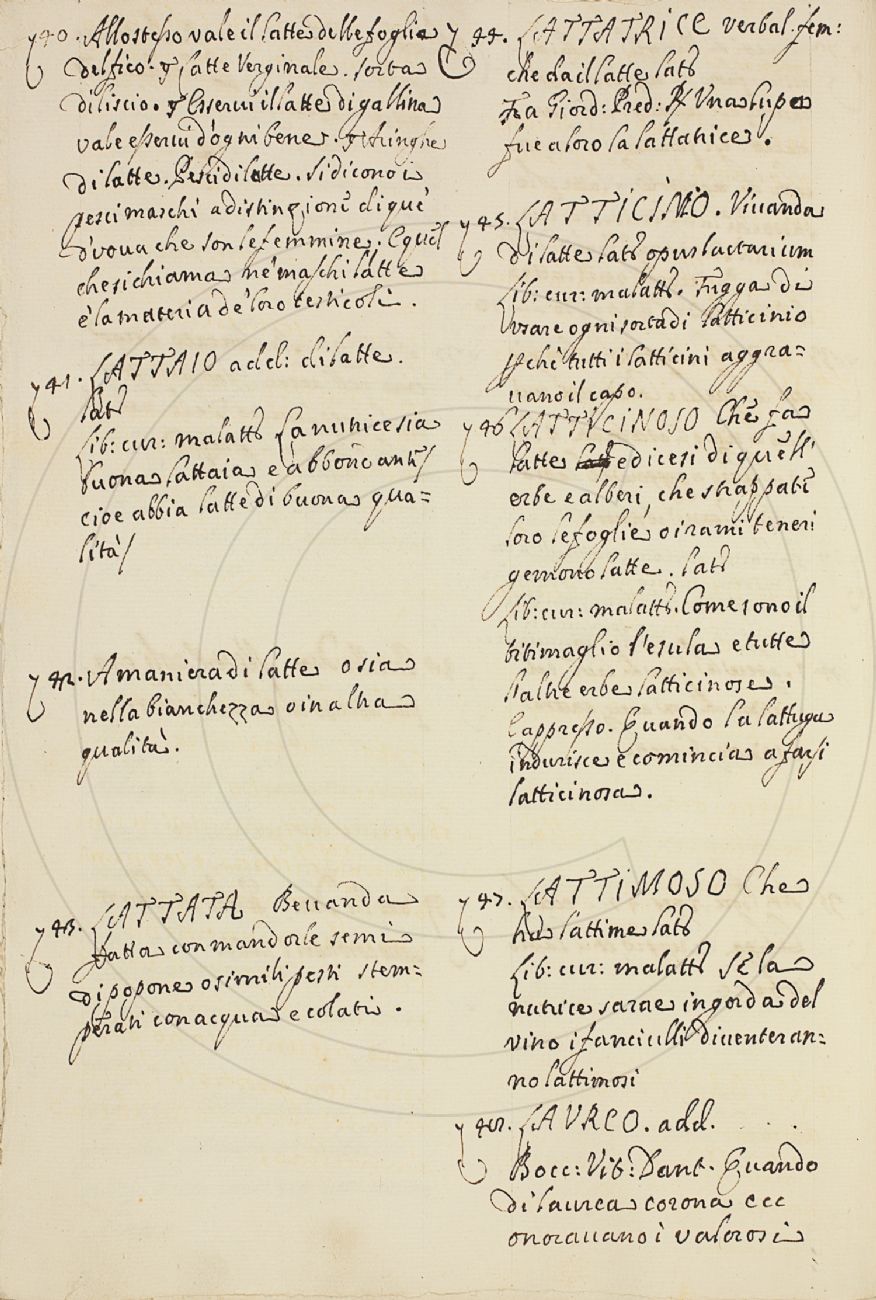 740. Allo stesso vale il latte delle foglie
del fico. § Latte Verginale. Sorta
di liscio. § Esserui il latte di gallina
vale esserui d'ogni bene. § Aringhe
di latte. Pesci di latte. Si dicono i
pesci maschi a distinzione di que'
d'voua che son le femmine. E quel
che si chiama ne' maschi latte
è la materia de' loro testicoli.
741. LATTAIO add: di latte.
Lat
Lib: cur: malatt La nutrice sia
buona lattaia e abbone anti/
cioe abbia latte di buona qua=
lità/
742. A maniera di latte o sia
nella bianchezza o in altra
qualità.
743. LATTATA Beuanda
fatta con mandorle semi
di popone o simili pesti stem=
perati con acqua e colati.
744. LATTATRICE verbal. fem:
che da il latte lat
Fra Giord: Pred: R Vna lupa
fue a loro la lattatrice.
745. LATTICINIO. Viuanda
di latte lat opus lactarium
Lib: cur: malatt. Fugga di
Vsare ogni sorta di latticinio
pchè tutti i latticini aggra=
uano il capo.
746 LATTICINOSO Che fa
latte e dicesi di quell'
erbe e alberi, che strappate
loro le foglie o i rami teneri
gemono latte. lat
Lib: cur: malatt. Come sono il
titimaglio l'esula e tutte
l'altre erbe latticinose.
E appresso. Quando la lattuga
indurisce e comincia a farsi
latticinosa.
747. LATTIMOSO Che
ha lattime lat
Lib: cur: malatt Se la
nutrice sarae ingorda del
vino i fanciulli diuenteran=
no lattimosi
748. LAUREO. add.
Bocc: Vit: Dant. Quando
di laurea corona ecc
onorauano i valorosi